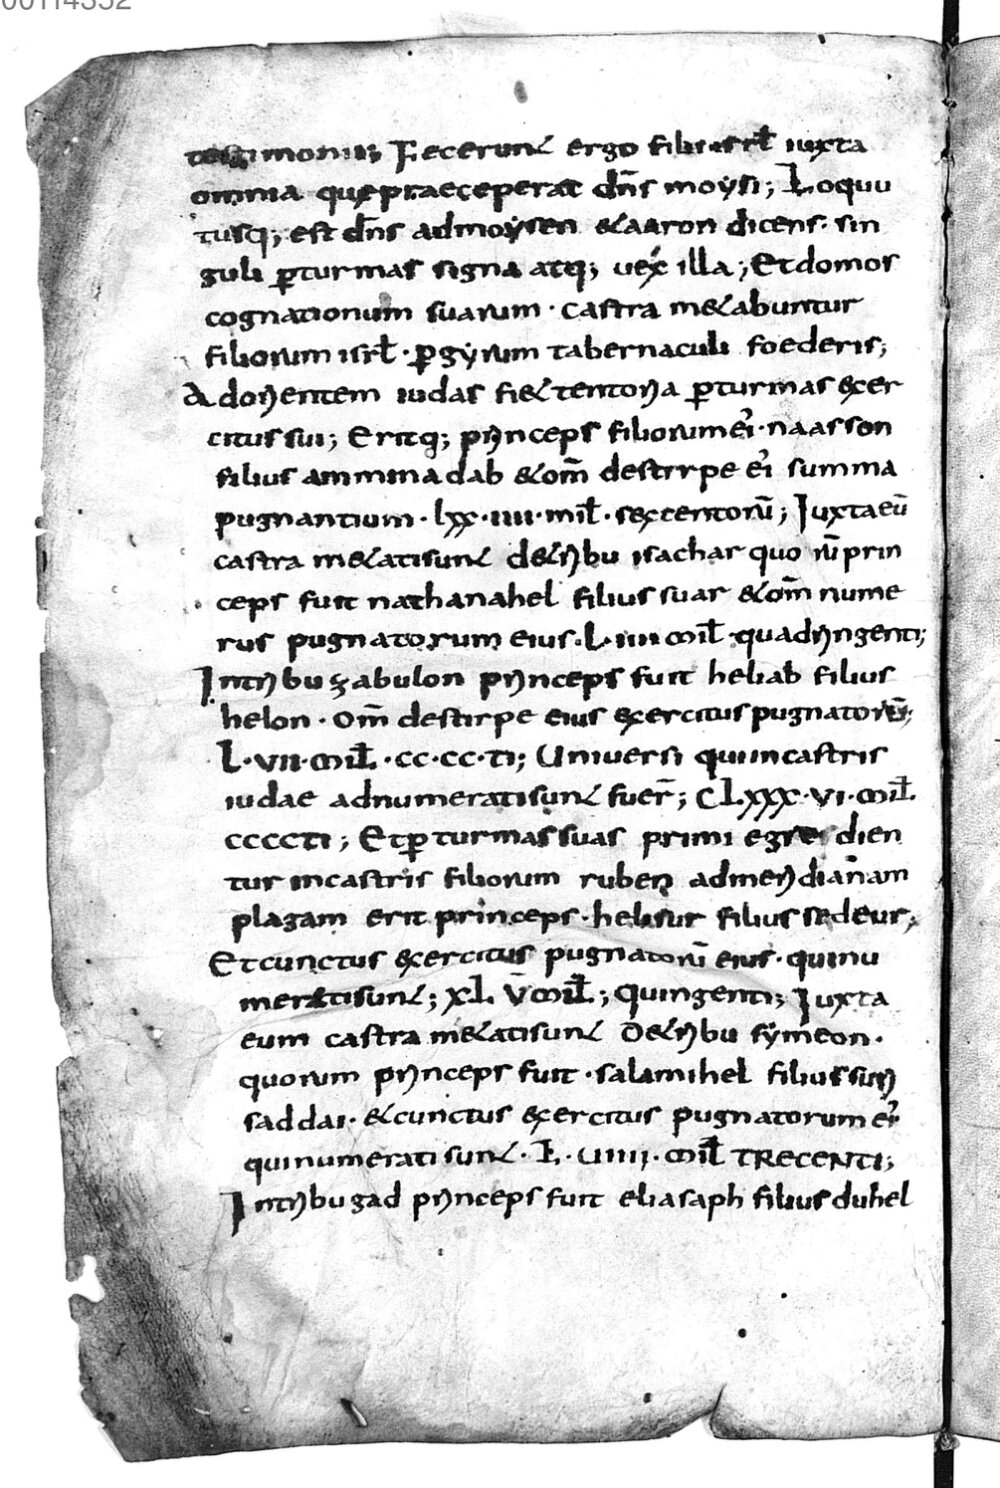 testimonii; Fecerunt ergo filii isrl̄ iuxta
omnia quę praeceperat dn̄s moẏsi; Loquu
tusq; est dn̄s admoẏsen &aaron dicens· sin
guli ꝑturmas signa atq; uex illa; Etdomos
cognationum suarum· castra m&abuntur
filiorum isrl̄· ꝑgẏrum tabernaculi foederis;
Adorientem iudas fi&tentoria ꝑturmas exer
citus sui; Eritq; princeps filiorum ei'· naasson
filius amminadab &om̄ destirpe ei' summa
pugnantium· lxx·iiii·mil̄· sexcentorū; Iuxtaeū
castra m&atisunt d&ribu isachar quo rū prin
ceps fuit nathanahel filius suar &om̄ nume
rus pugnatorum eius· L·iiii mil̄ quadringenti;
Intribu zabulon princeps fuit heliab filius
helon· om̄ destirpe eius exercitus pugnatorū;
L·vii·mil̄·cc·cc·ti; Uniuersi quiincastris
iudae adnumeratisunt fuer̄; CLxxx·vi·mil̄·
ccccti; Etꝑturmas suas primi egre dien
tur incastris filiorum ruben admeridianam
plagam erit princeps· helisur filius sedeur;
Etcunctus exercitus pugnatorū eius· quinu
meratisunt; xL v̄mil̄; quingenti; Iuxta
eum castra m&atisunt d&ribu sẏmeon·
quorum princeps fuit· salamihel filius suri
saddai· &cunctus exercitus pugnatorum ei'
quinumerati sunt· L·uiiii·mil̄ TRECENTI;
Intribu gad princeps fuit eliasaph filius duhel